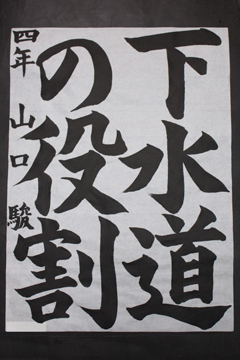 下水道
の役割
四年 山口 駿